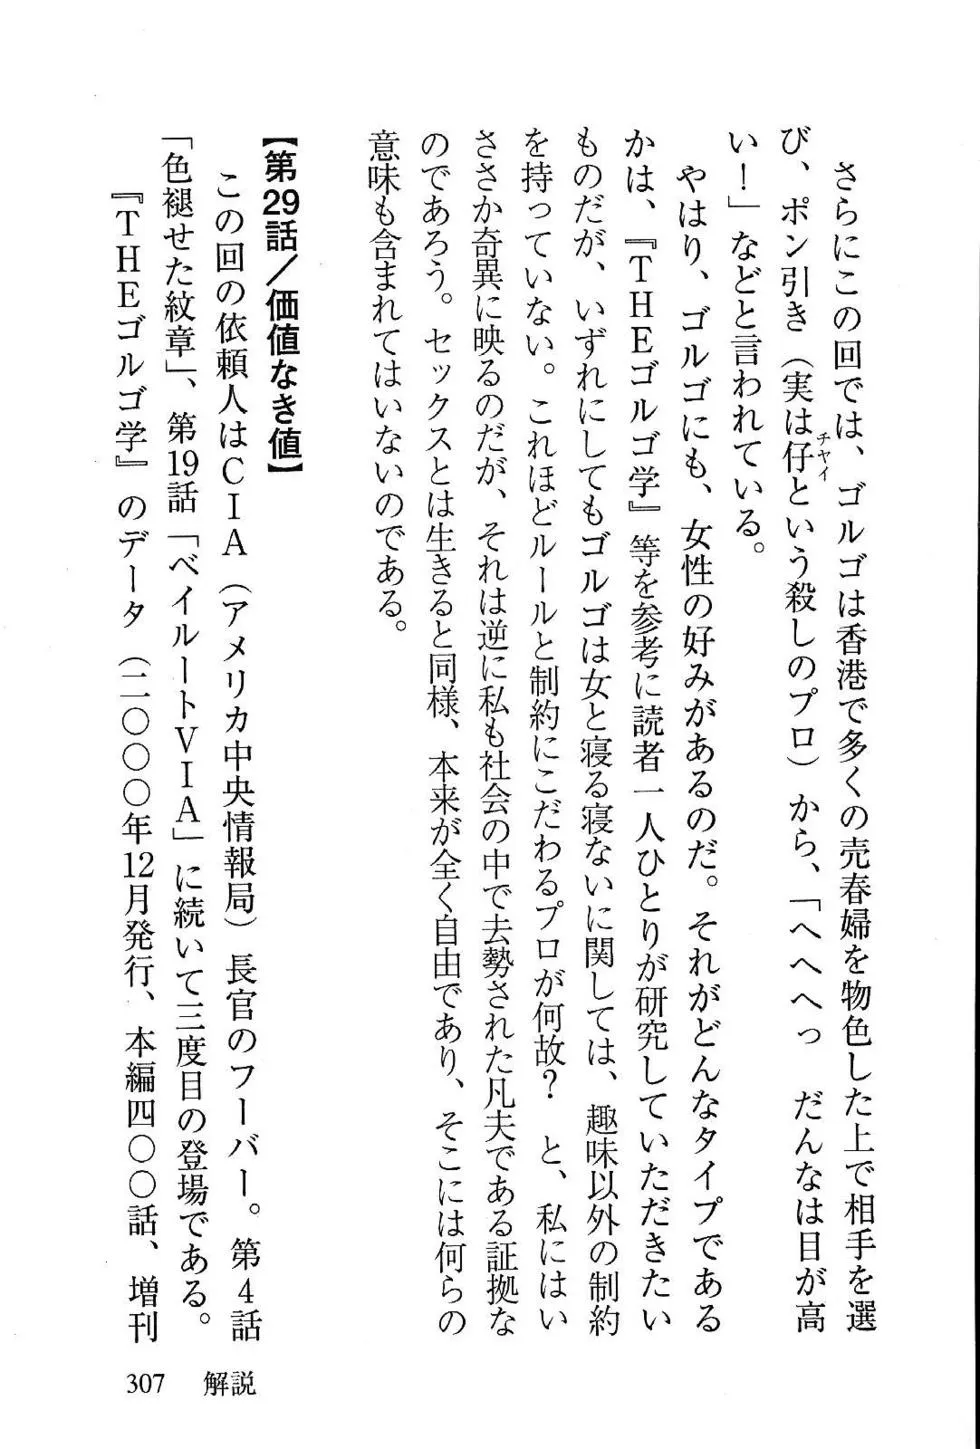 さらにこの回では、ゴルゴは香港で多くの売春婦を物色した上で相手を選
び、ポン引き（実は仔という殺しのプロ）から、「へへへっ　だんなは目が高
チャイ
い！」などと言われている。
やはり、ゴルゴにも、女性の好みがあるのだ。それがどんなタイプである
かは、『ＴＨＥゴルゴ学』等を参考に読者一人ひとりが研究していただきたい
ものだが、いずれにしてもゴルゴは女と寝る寝ないに関しては、趣味以外の制約
を持っていない。これほどルールと制約にこだわるプロが何故？　と、私にはい
ささか奇異に映るのだが、それは逆に私も社会の中で去勢された凡夫である証拠な
のであろう。セックスとは生きると同様、本来が全く自由であり、そこには何らの
意味も含まれてはいないのである。
【第29話／価値なき値】
この回の依頼人はＣＩＡ（アメリカ中央情報局）長官のフーバー。第４話
「色褪せた紋章」、第19話「ベイルートＶＩＡ」に続いて三度目の登場である。
『ＴＨＥゴルゴ学』のデータ（二〇〇〇年12月発行、本編四〇〇話、増刊
307　解説